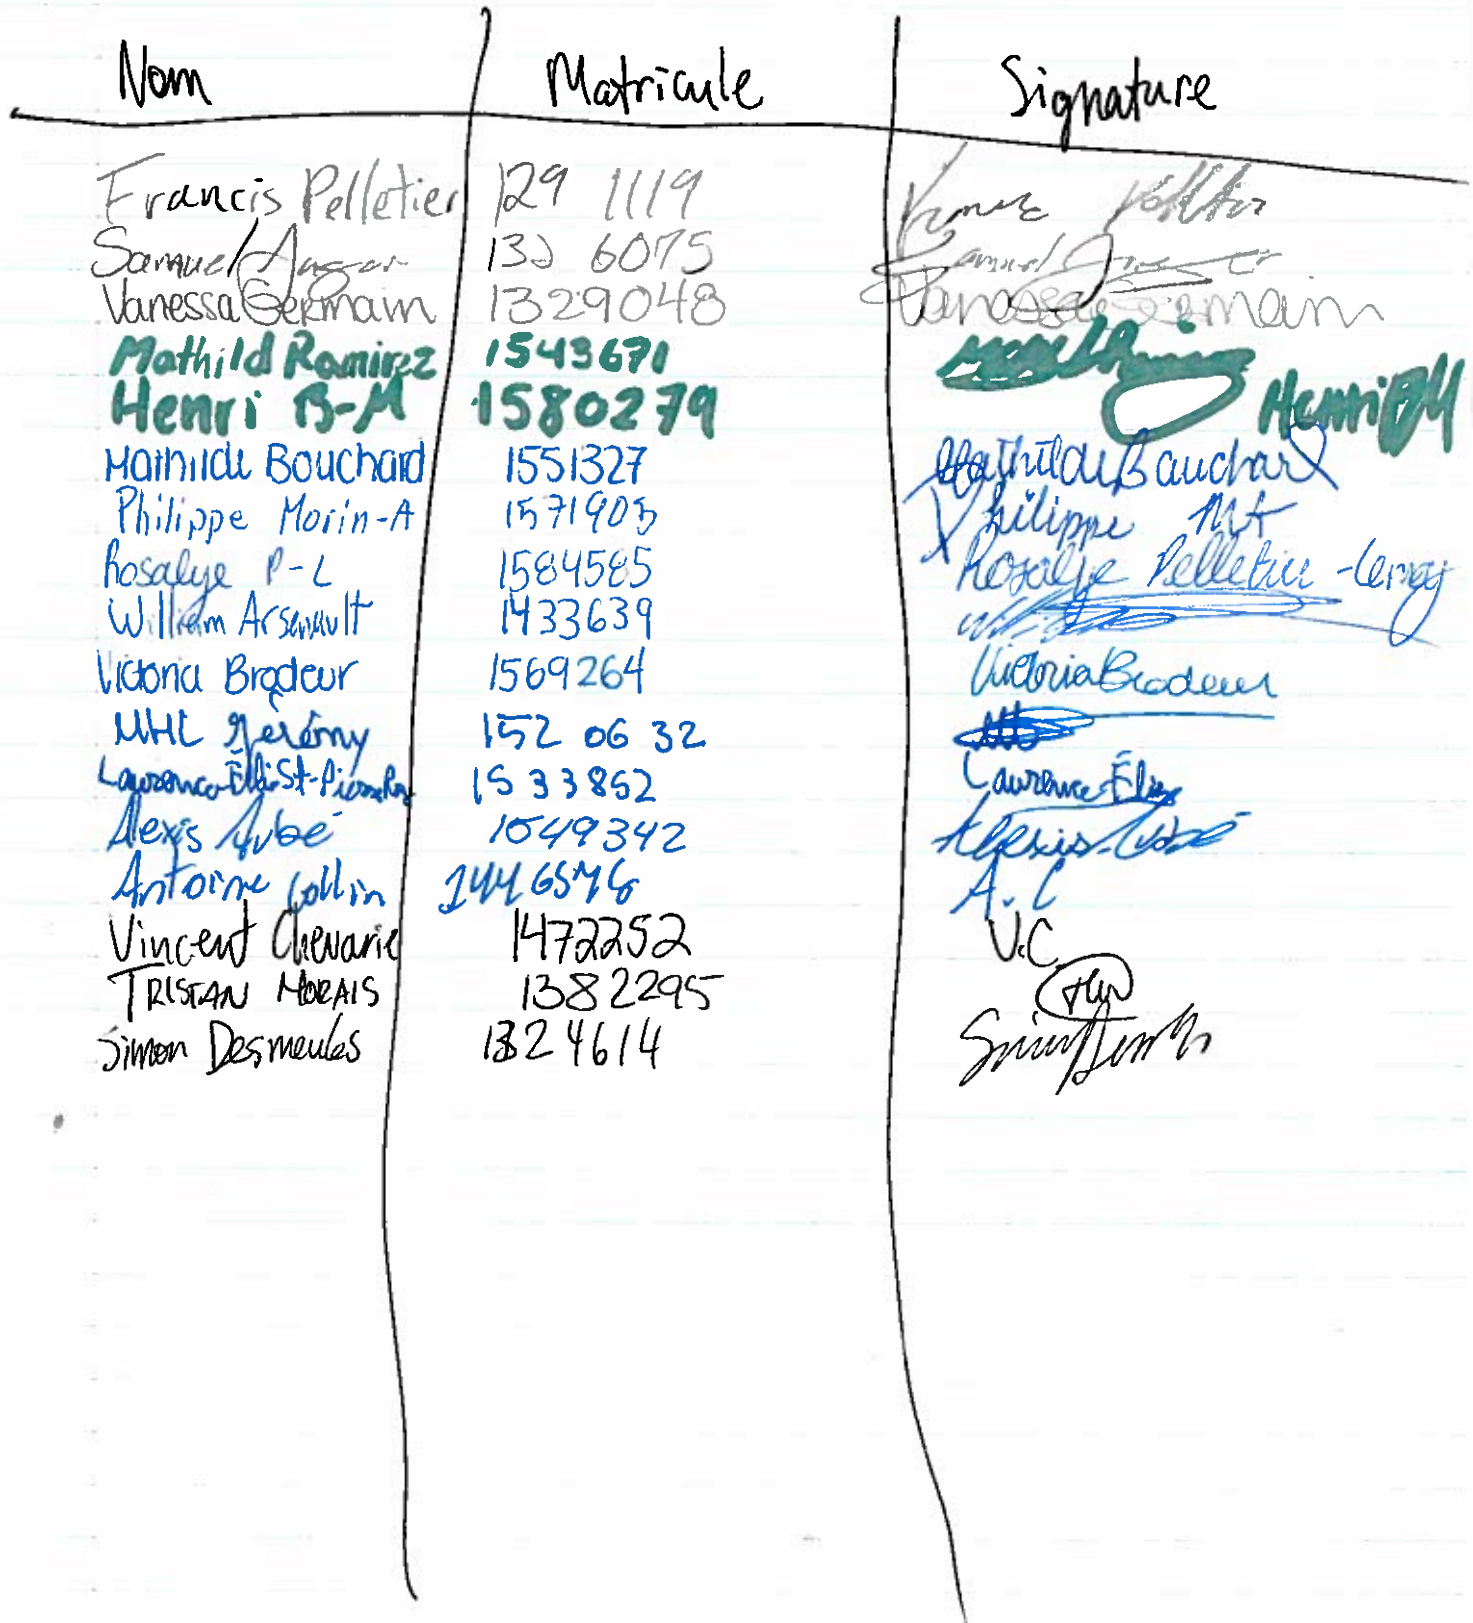 Nom Matricule Signature
Francis Pelletier 129 1119
Samuel Auger 132 6075 Samuel
Vanessa Germain 1329048 Vanessa Germain
Mathild Ramirez 1543671
Henri B-M 1580279 Henri BM
Mathilde Bouchard 1551327 Mathilde Bouchard
Philippe Morin-A 1571903 Philippe MA
Rosalye P-L 1584585 Rosalye Pelletier-Lemay
William Arsenault 1433639
Victoria Brodeur 1569264 Victoria Brodeur
MHL Jérémy 152 06 32
Laurence-Élie St-Pierre 1533852 Laurence-Élie
Alexis Aubé 1549342 Alexis Aubé
Antoine Collin A.C
Vincent Chevarie 1472252 V.C
TRISTAN MORAIS 1382295
Simon Desmeules 1324614